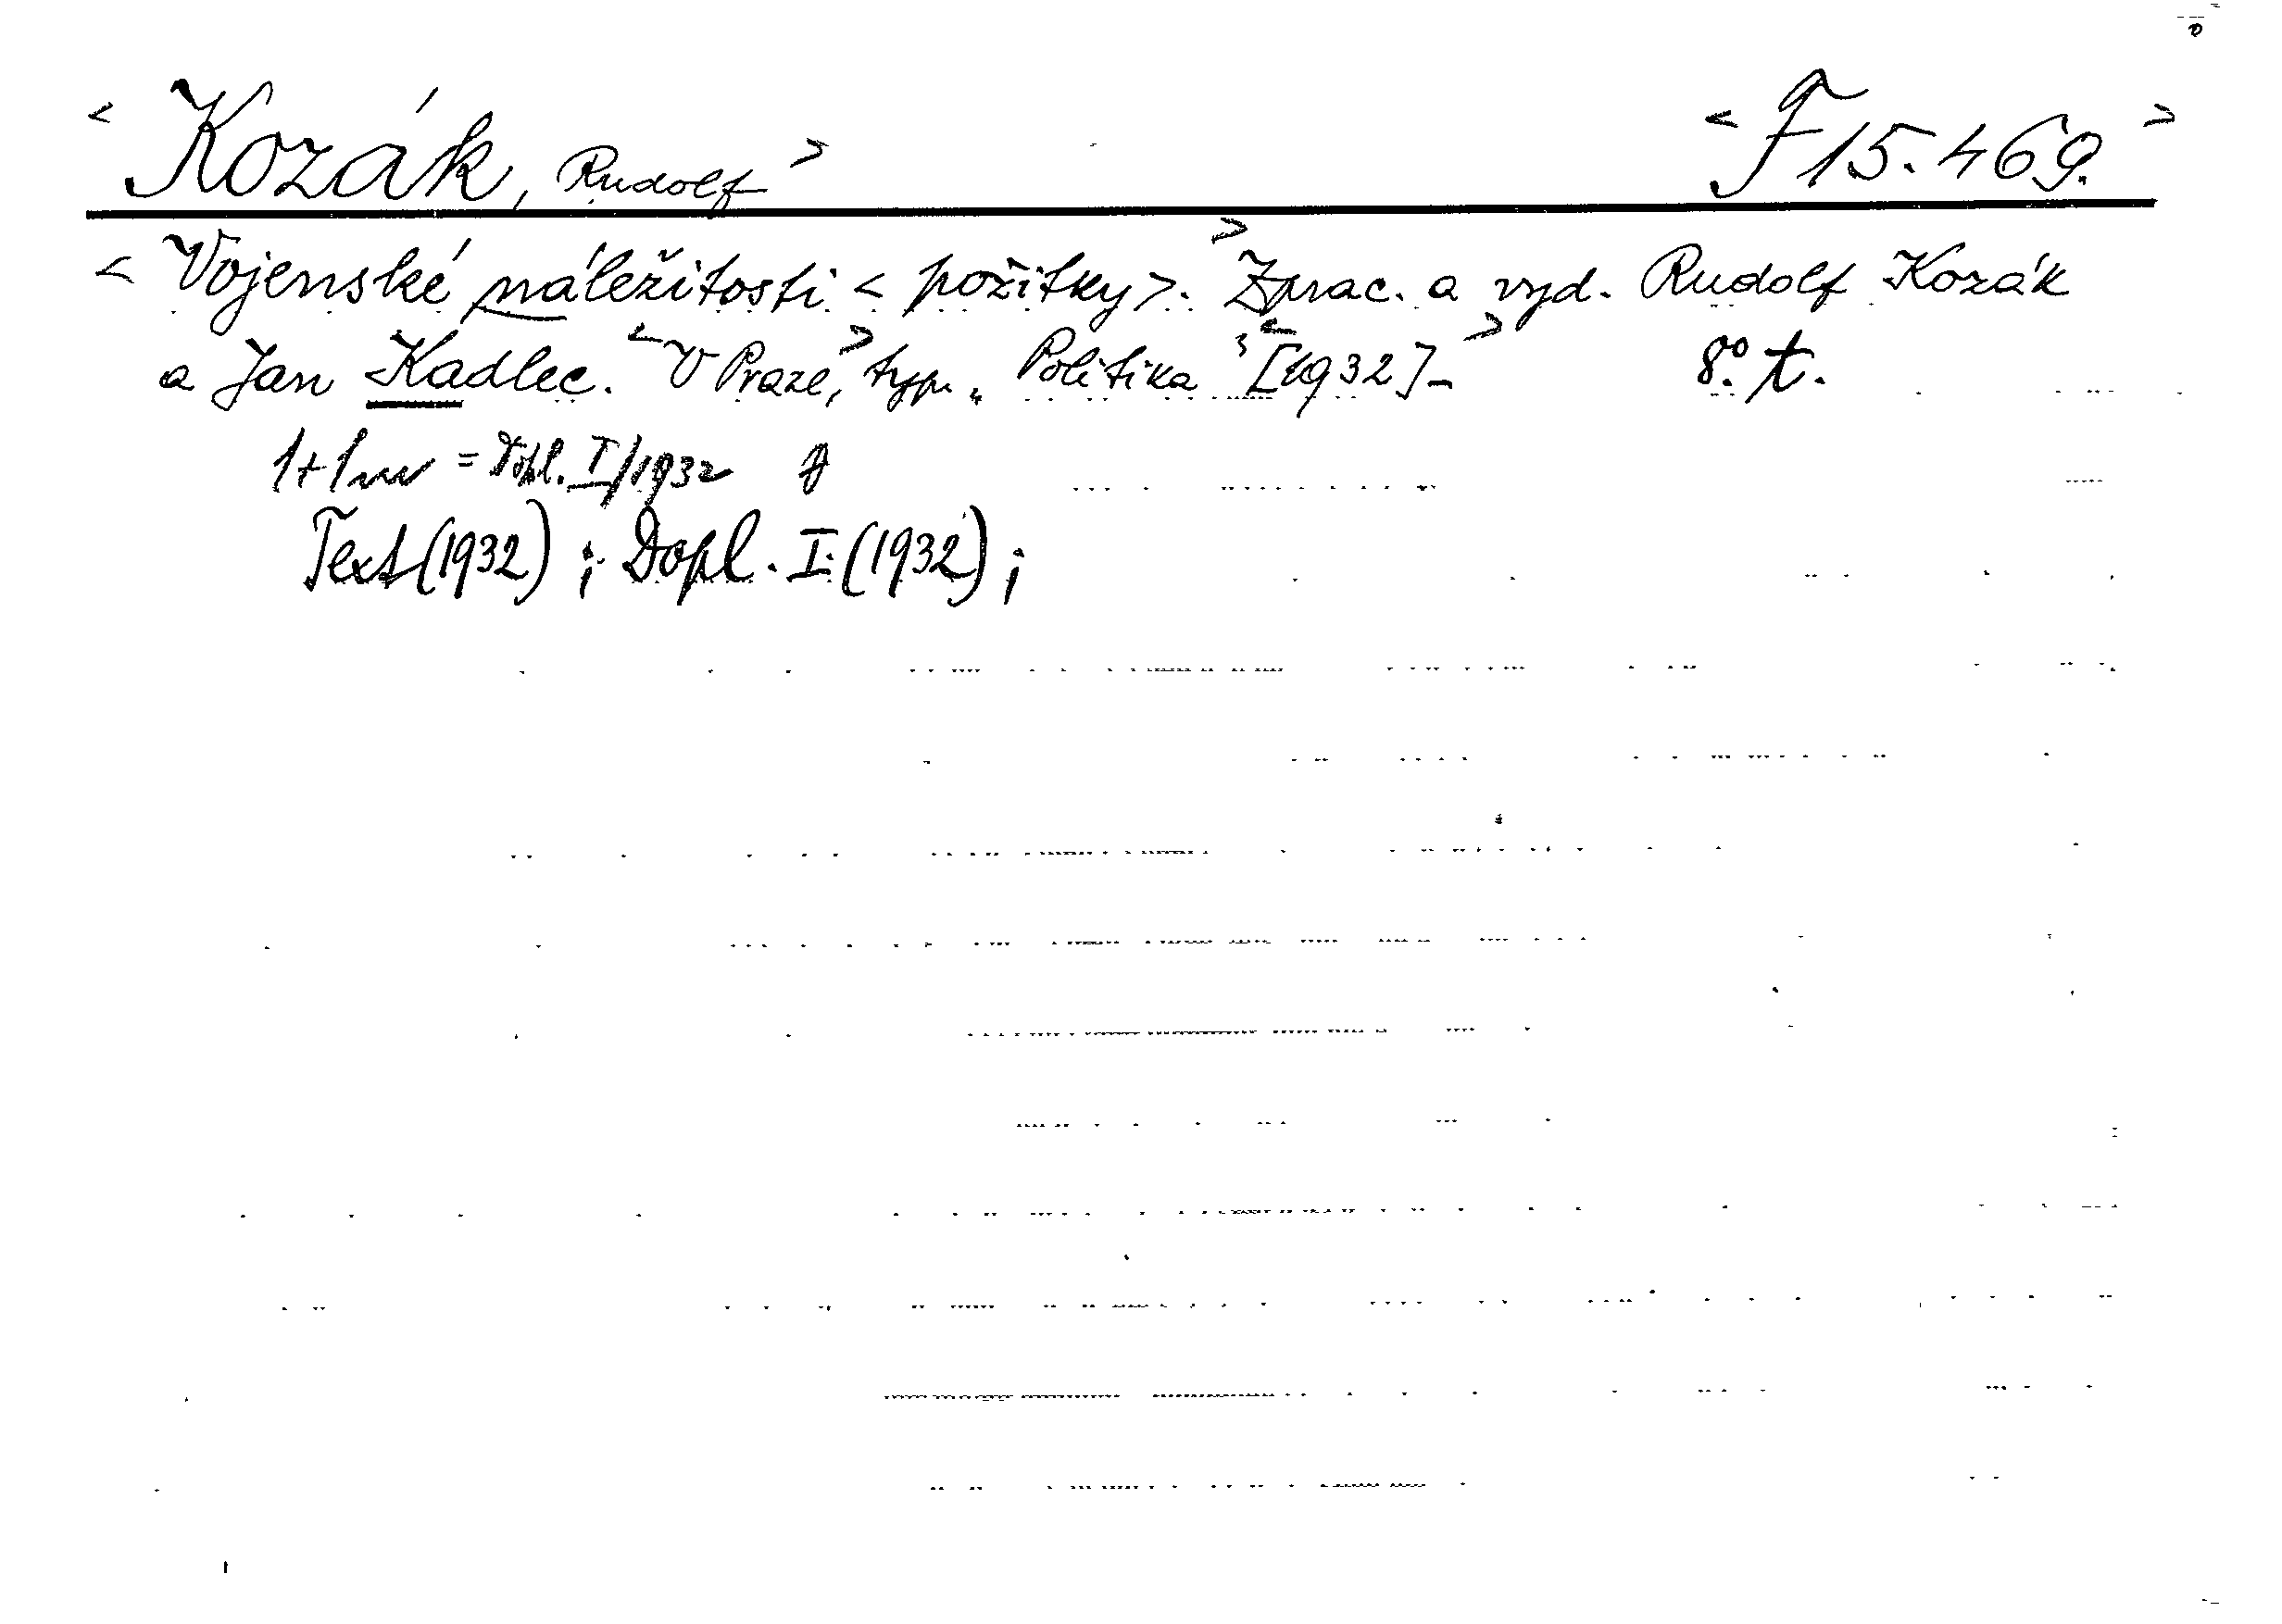 < Kozák, Rudolf > < F 15.469. >
< Vojenské náležitosti < požitky >. > Zprac. a vyd. Rudolf Kozák
a Jan Kadlec. < V Praze, > typ. „Politika“ < [1932]- > 8° t.
1+1 = Dopl. I/1932
Text (1932) ; Dopl. I. (1932) ;